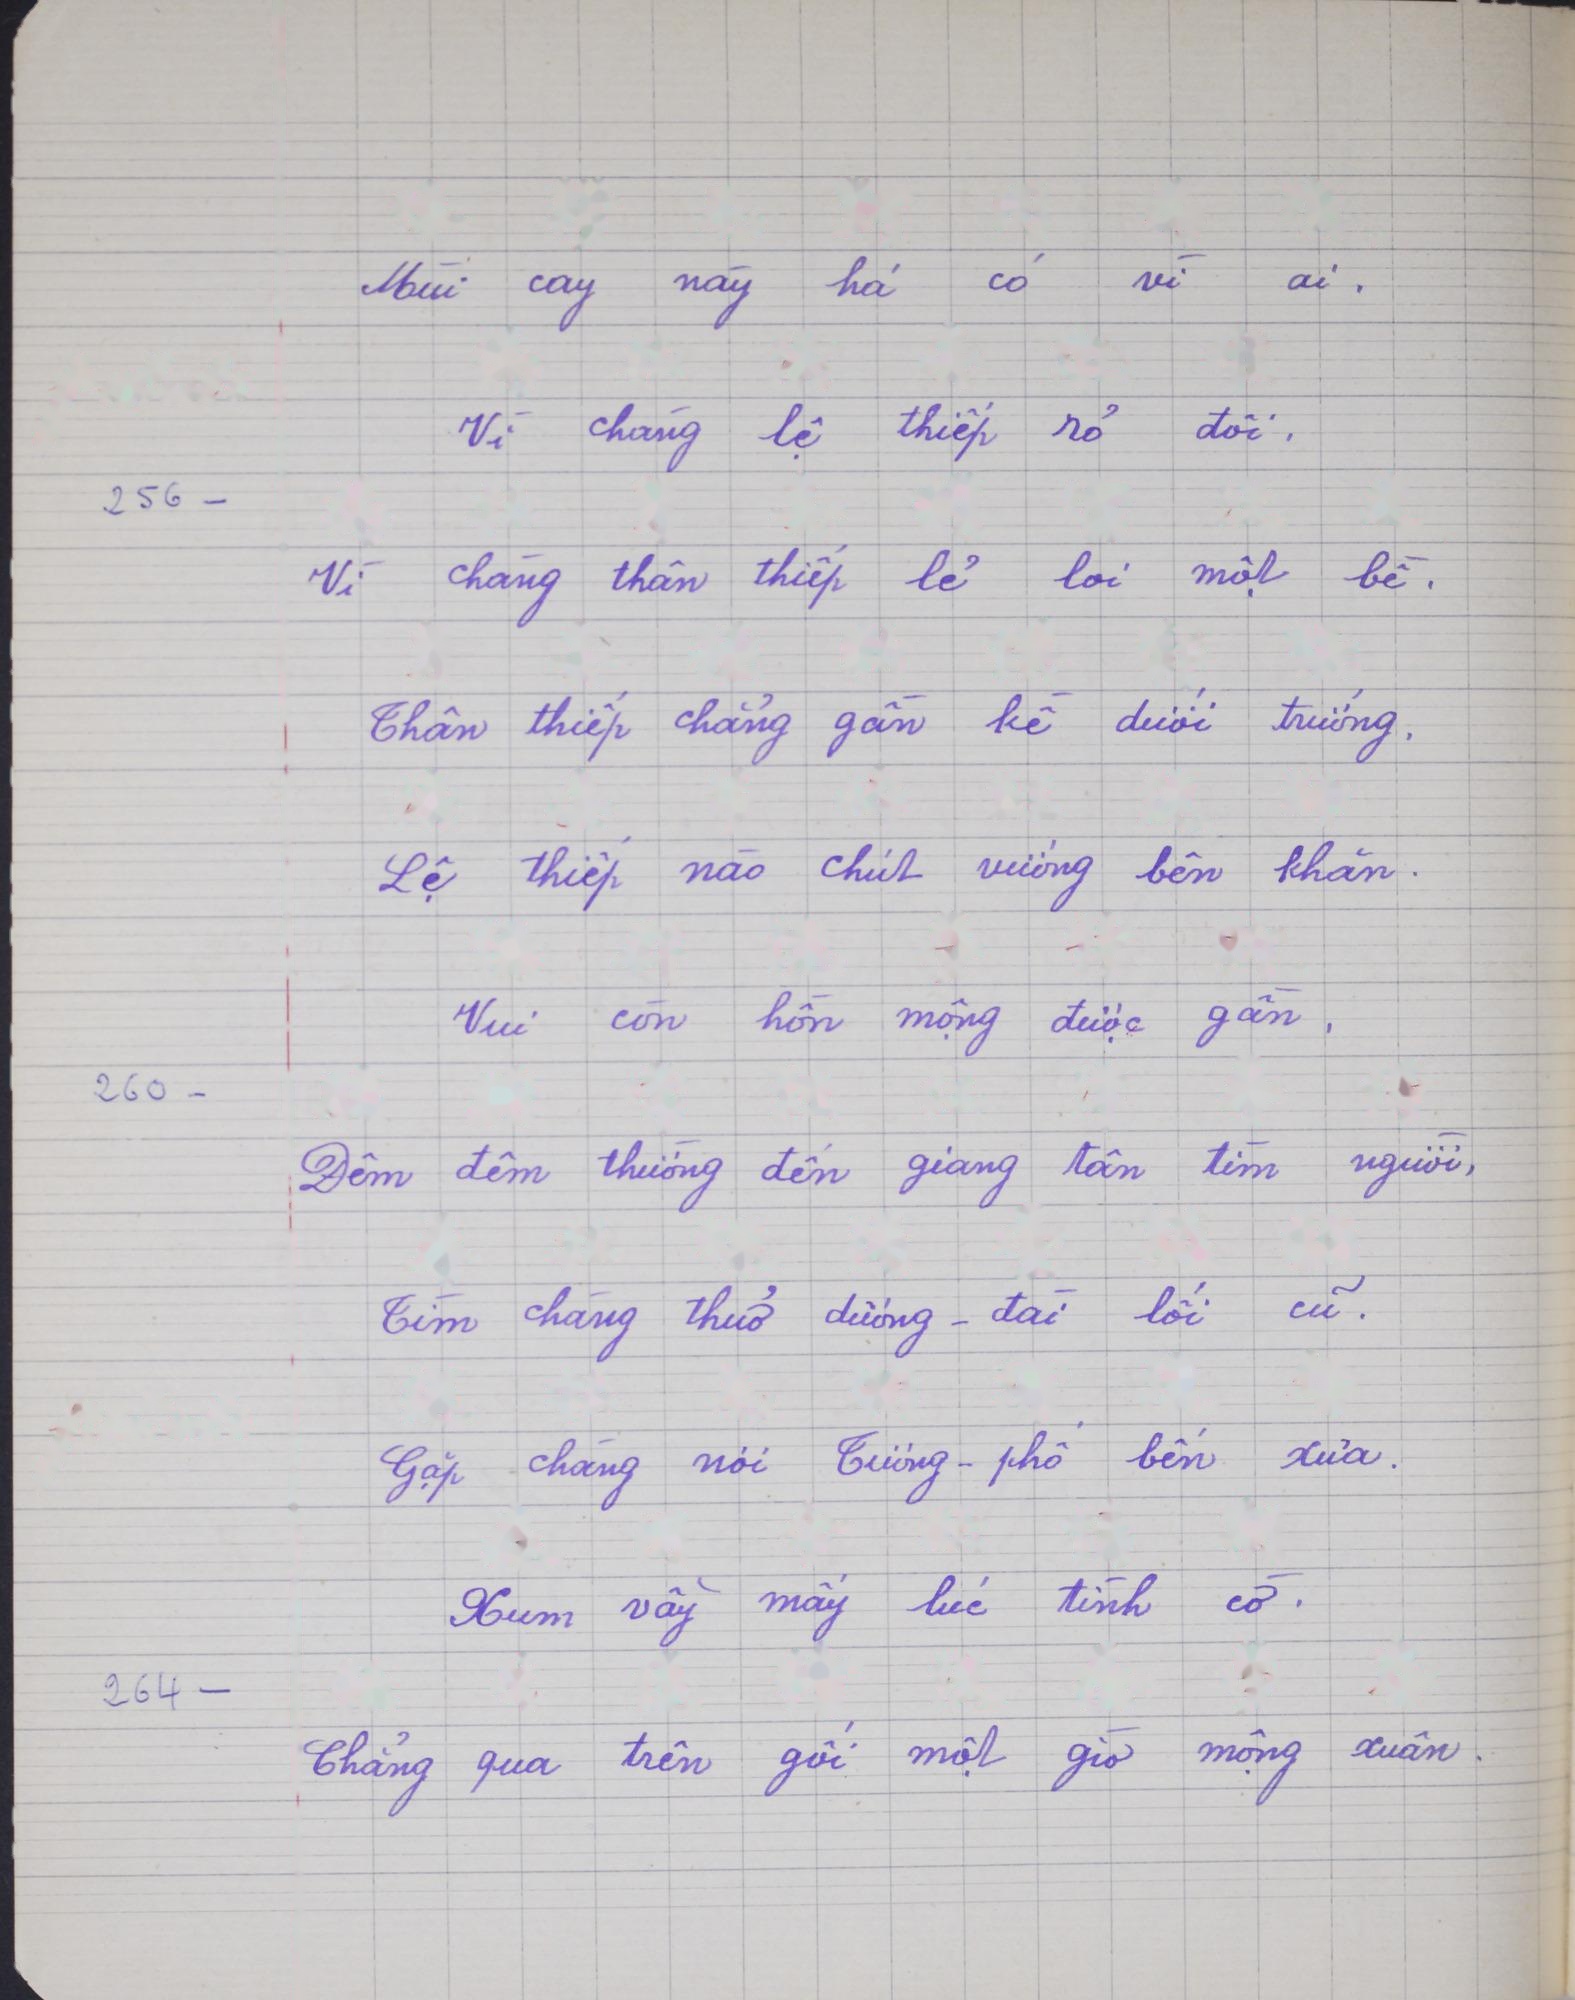 Mùi cay này há có vì ai.
Vì chàng lệ thiếp rỏ đôi.
256 -
Vì chàng thân thiếp lẻ loi một bề.
Thân thiếp chẳng gần kề dưới trướng,
Lệ thiếp nào chút vướng bên khăn.
Vui còn hồn mộng được gần,
260 -
Đêm đêm thường đến giang tân tìm người,
Tìm chàng thuở dương-đài lối cũ.
Gặp chàng nơi Tương-phố bến xưa.
Xum vầy mấy lúc tình cờ.
264 -
Chẳng qua trên gối một giờ mộng xuân.